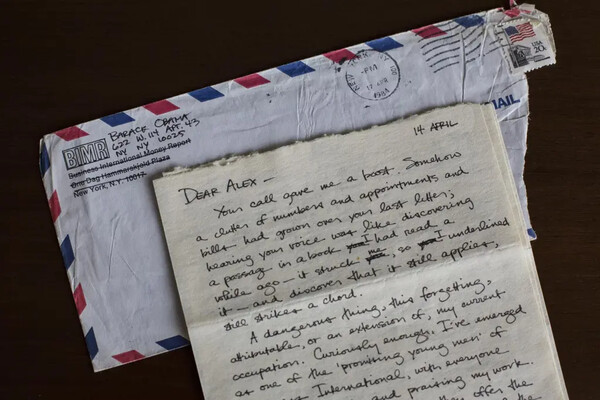 BARACK OBAMA
622 W. 114 APT. 43
NY NY 10025
BIMR
Business International Money Report
One Dag Hammarskjold Plaza
New York, N.Y. 10017
NEW YORK, NY
PM
1984
USA
20c
MAIL
14 APRIL
DEAR ALEX —
Your call gave me a boost. Somehow
a clutter of numbers and appointments and
bills had grown over your last letter;
hearing your voice was like discovering
a passage in a book I had read a
while ago — it struck me, so I underlined
it — and discover that it still applies,
still strikes a chord.
A dangerous thing, this forgetting,
attributable, or an extension of, my current
occupation. Curiously enough, I've emerged
as one of the "promising young men" of
International, with everyone
and praising my work.
they offer the
the